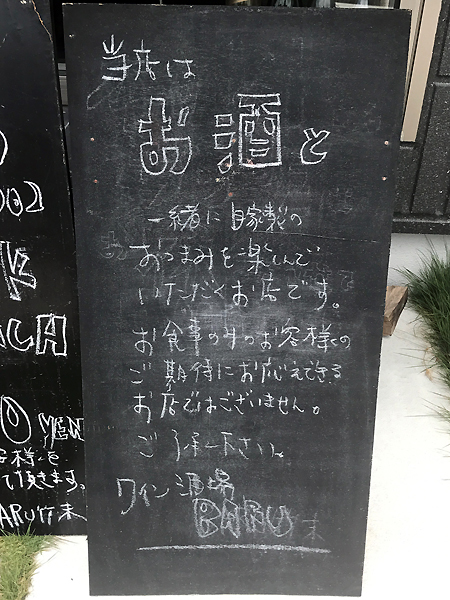 当店は
お酒と
一緒に自家製の
おつまみを楽しんで
いただくお店です。
お食事のみのお客様の
ご期待にお応えできる
お店ではございません。
ご了承下さい。
ワイン酒場
BARU
002
ACH
0 YEN
客様を
て頂きます。